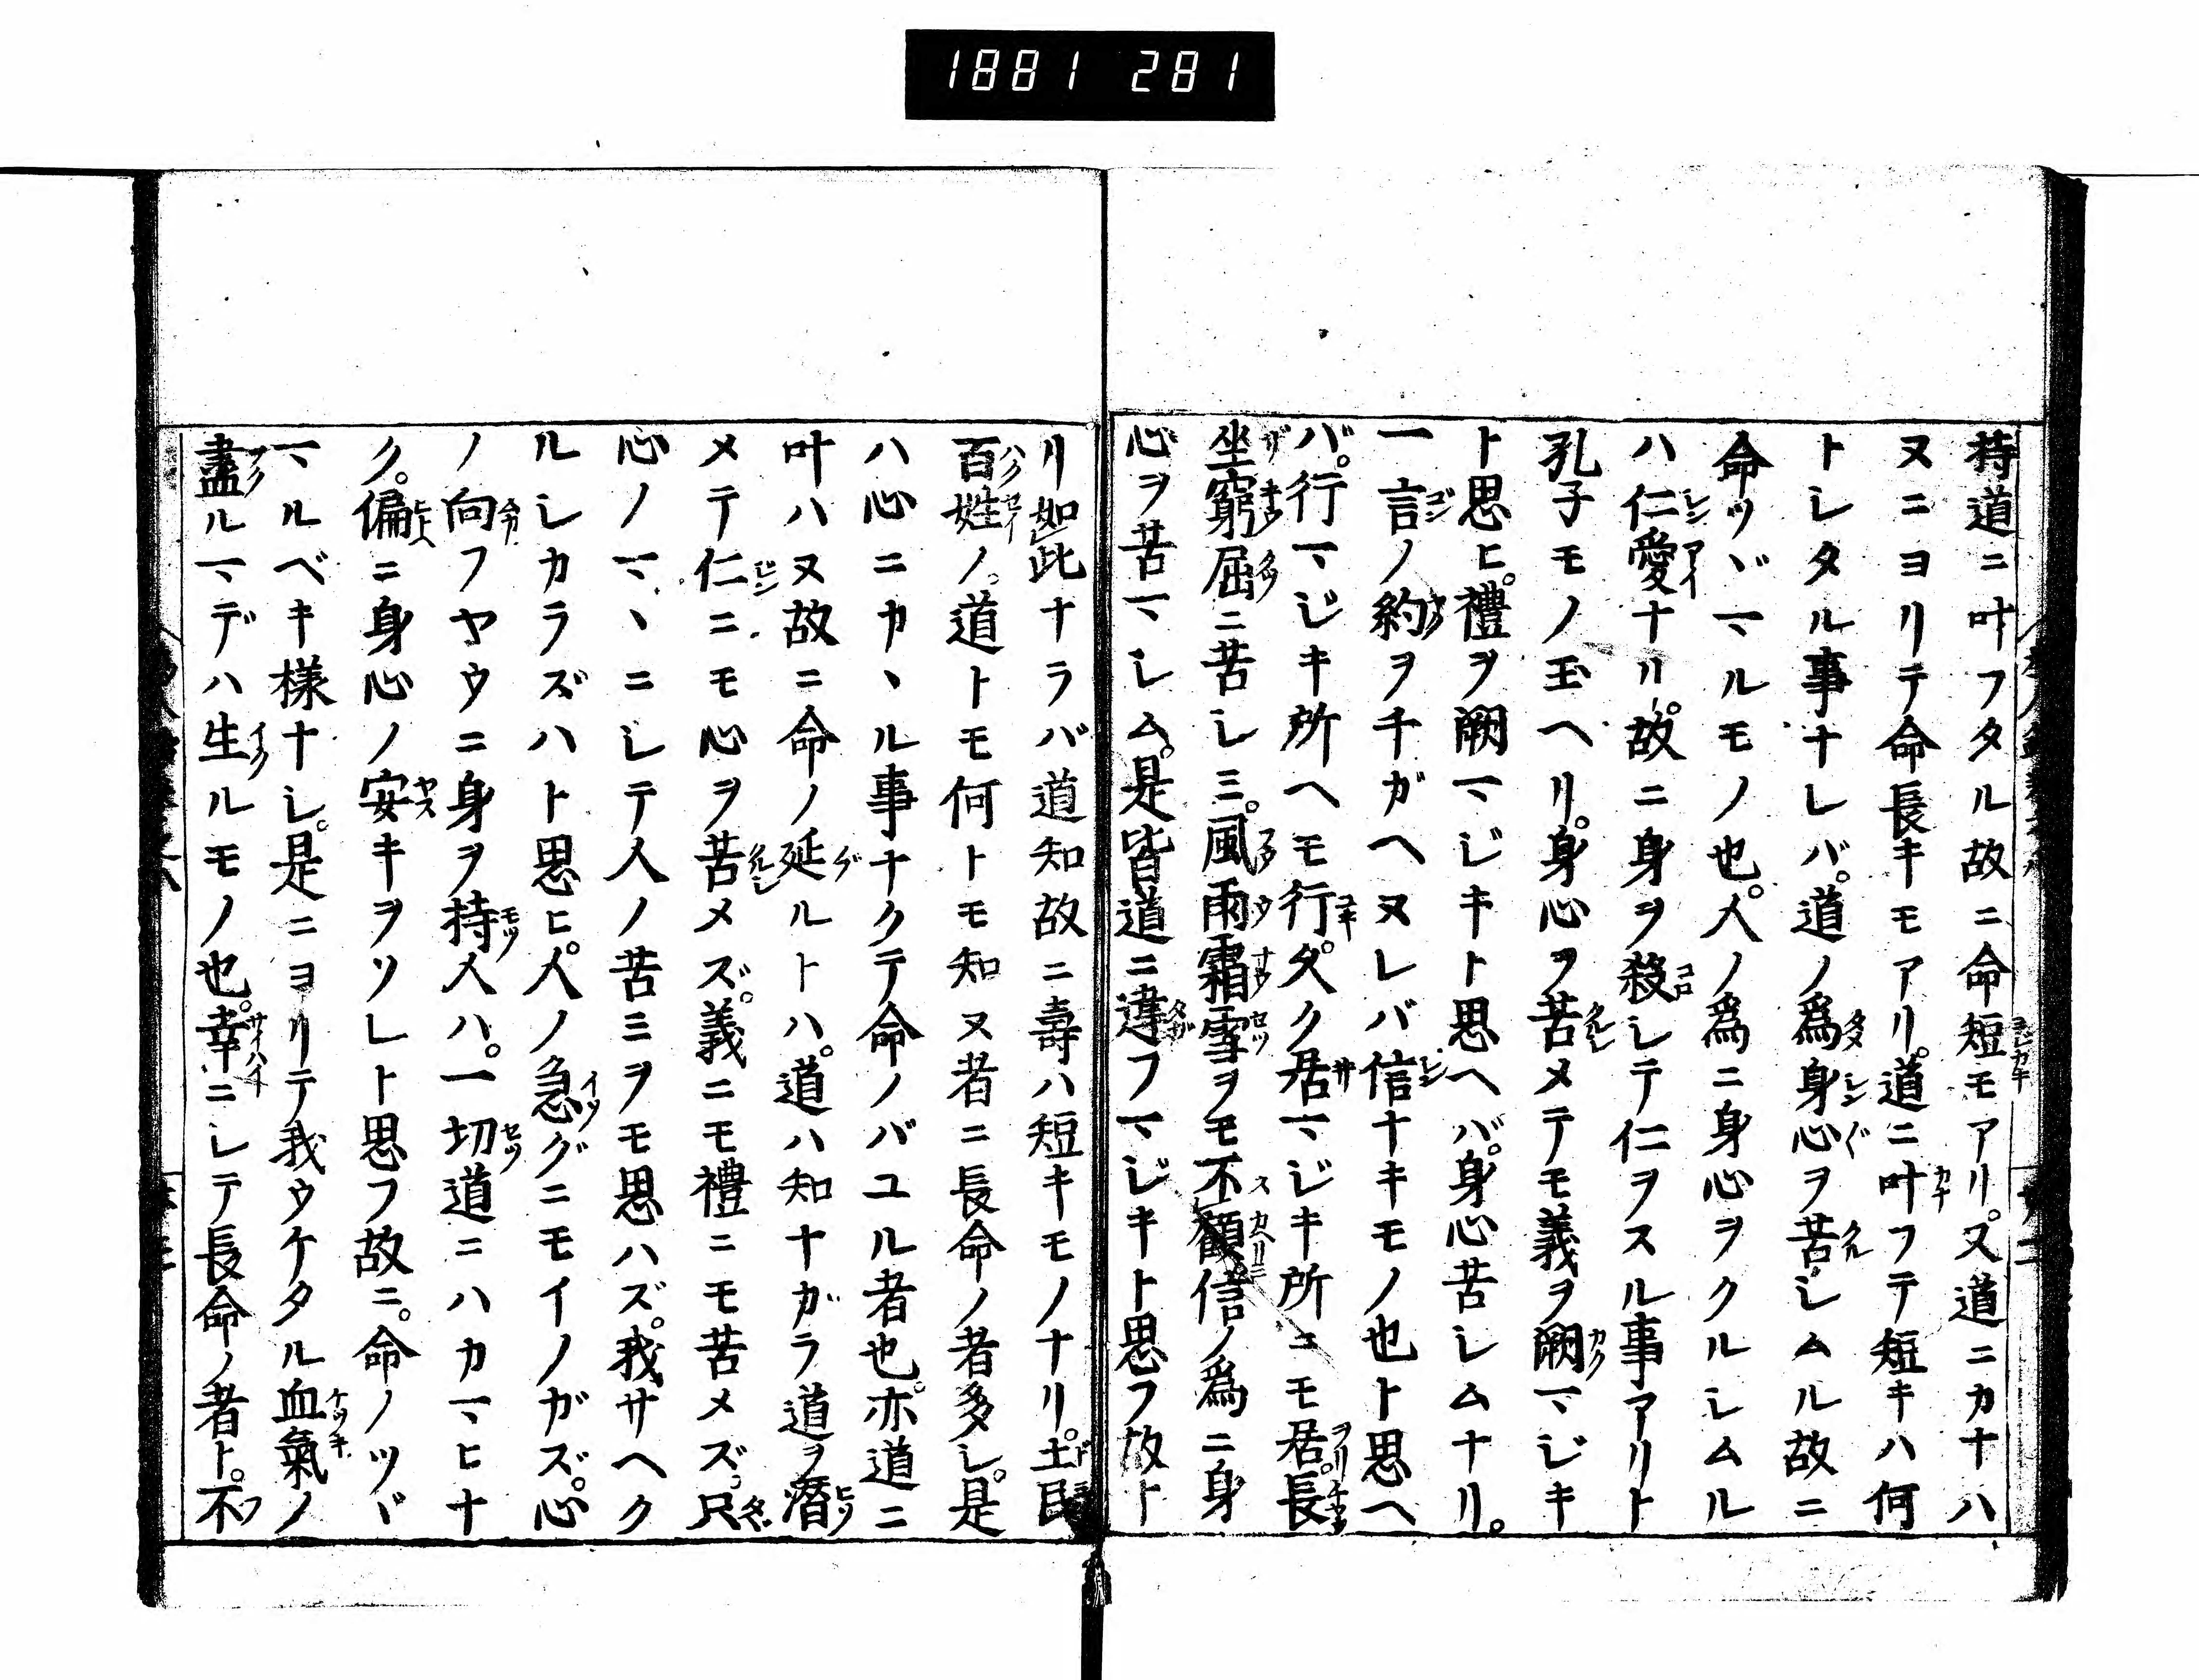 1881 281
持道ニ叶フタル故ニ命短モアリ。又道ニカナハ
ヌニヨリテ命長キモアリ。道ニ叶フテ短キハ何
トシタル事ナレバ。道ノ爲身心ヲ苦シムル故ニ
命ツヾマルモノ也。人ノ爲ニ身心ヲクルシムル
ハ仁愛ナリ。故ニ身ヲ殺シテ仁ヲスル事アリト
孔子モノ玉ヘリ。身心ヲ苦メテモ義ヲ闕マジキ
ト思ヒ。禮ヲ闕マジキト思ヘバ。身心苦シムナリ。
一言ノ約ヲチガヘヌレバ信ナキモノ也ト思ヘ
バ。行マジキ所ヘモ行。久ク居マジキ所ニモ居。長
坐窮屈ニ苦シミ。風雨霜雪ヲモ不顧信ノ爲ニ身
心ヲ苦マシム。是皆道ニ違フマジキト思フ故ト
リ如此ナラバ道知故ニ壽ハ短キモノナリ。土民
百姓ノ。道トモ何トモ知ヌ者ニ長命ノ者多シ。是
ハ心ニカヽル事ナクテ命ノバユル者也。亦道ニ
叶ハヌ故ニ命ノ延ルトハ。道ハ知ナガラ道ヲ潛
メテ仁ニモ心ヲ苦メズ。義ニモ禮ニモ苦メズ。只
心ノマヽニシテ人ノ苦ミヲモ思ハズ。我サヘク
ルシカラズハト思ヒ。人ノ急グニモイノガズ。心
ノ向フヤウニ身ヲ持人ハ。一切道ニハカマヒナ
ク。偏ニ身心ノ安キヲソレト思フ故ニ。命ノツヾ
マルベキ様ナシ。是ニヨリテ我ウケタル血氣ノ
盡ルマデハ生ルモノ也。幸ニシテ長命ノ者ト。不